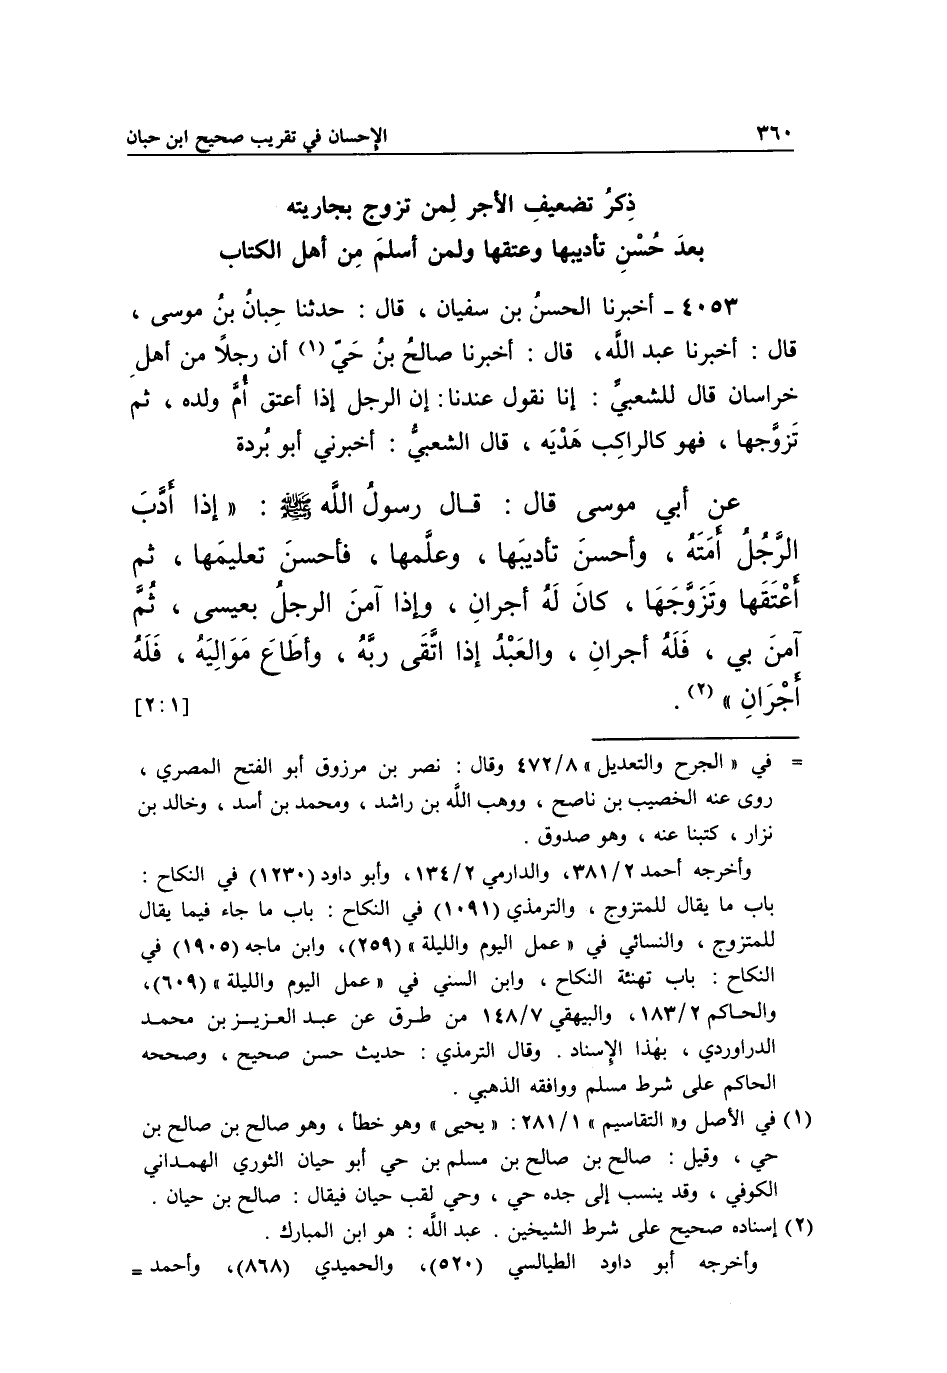 ٣٦٠ الإحسان في تقريب صحيح ابن حبان
ذِكرُ تضعيفِ الأجر لِمن تزوج بجاريته
بعدَ حُسْنِ تأديبها وعتقها ولمن أسلمَ مِن أهل الكتاب
٤٠٥٣ ـ أخبرنا الحسنُ بن سفيان ، قال : حدثنا حِبانُ بنُ موسى ،
قال : أخبرنا عبد اللَّه، قال : أخبرنا صالحُ بنُ حَيّ (١) أن رجلاً من أهلِ
خراسان قال للشعبيِّ : إنا نقول عندنا: إن الرجل إذا أعتق أُمَّ ولده ، ثم
تَزوَّجها ، فهو كالراكِب هَدْيَه ، قال الشعبيُّ : أخبرني أبو بُردة
عن أبي موسى قال : قـال رسولُ اللَّه ﷺ : « إذا أَدَّبَ
الرَّجُلُ أَمَتَهُ ، وأحسنَ تأديبَها ، وعلَّمها ، فأحسنَ تعليمَها ، ثم
أَعْتَقَها وتَزَوَّجَهَا ، كانَ لَهُ أجرانِ ، وإذا آمنَ الرجلُ بعيسى ، ثُمَّ
آمنَ بي ، فَلَهُ أجرانِ ، والعَبْدُ إذا اتَّقَى ربَّهُ ، وأطَاعَ مَوَالِيَهُ ، فَلَهُ
أَجْرَانِ » (٢) . [٢:١]
= في « الجرح والتعديل » ٤٧٢/٨ وقال : نصر بن مرزوق أبو الفتح المصري ،
روى عنه الخصيب بن ناصح ، ووهب اللَّه بن راشد ، ومحمد بن أسد ، وخالد بن
نزار ، كتبنا عنه ، وهو صدوق .
وأخرجه أحمد ٣٨١/٢، والدارمي ١٣٤/٢، وأبو داود (١٢٣٠) في النكاح :
باب ما يقال للمتزوج ، والترمذي (١٠٩١) في النكاح : باب ما جاء فيما يقال
للمتزوج ، والنسائي في « عمل اليوم والليلة » (٢٥٩)، وابن ماجه (١٩٠٥) في
النكاح : باب تهنئة النكاح ، وابن السني في « عمل اليوم والليلة » (٦٠٩)،
والحـاكم ١٨٣/٢، والبيهقي ١٤٨/٧ من طـرق عن عبـد العـزيـز بن محمـد
الدراوردي ، بهٰذا الإسناد . وقال الترمذي : حديث حسن صحيح ، وصححه
الحاكم على شرط مسلم ووافقه الذهبي .
(١) في الأصل و« التقاسيم » ٢٨١/١: « يحيى » وهو خطأ ، وهو صالح بن صالح بن
حي ، وقيل : صالح بن صالح بن مسلم بن حي أبو حيان الثوري الهمـداني
الكوفي ، وقد ينسب إلى جده حي ، وحي لقب حيان فيقال : صالح بن حيان .
(٢) إسناده صحيح على شرط الشيخين . عبد اللَّه : هو ابن المبارك .
وأخرجه أبو داود الطيالسي (٥٢٠)، والحميدي (٨٦٨)، وأحمد =